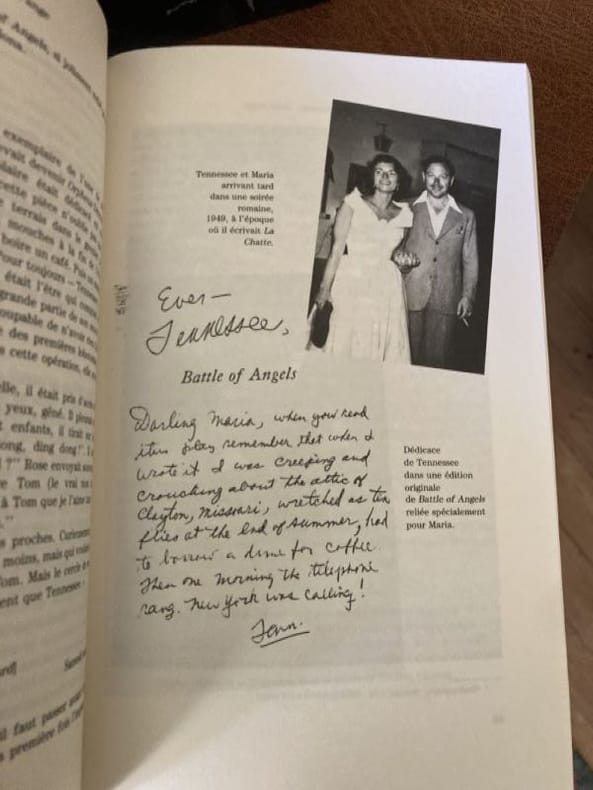 ange.
of Angels, et
exemplaire de l'une
evait devenir
daire était
cette pièce n'oublie
terrais dans le
mouches à la fin de
boire un café. Puis un
Pour toujours – Tennes
était l'être qui
grande partie de
oupable de n'avoir
des premières
cette opération, elle
elle, il était pris
yeux, gêné. Il
enfants, il
ong, ding dong!".
?" Rose envoyait
e Tom (le vrai
à Tom que je l'aime
s proches. Curieusement
moins, mais qui
om. Mais le cercle
ent que Tennessee
il faut passer
s première fois
Tennessee et Maria
arrivant tard
dans une soirée
romaine,
1949, à l'époque
où il écrivait La
Chatte.
Ever —
Tennessee,
Battle of Angels
Darling Maria, when you read
this play remember that when I
wrote it I was creeping and
crouching about the attic of
Clayton, Missouri, wretched as ten
flies at the end of summer, had
to borrow a dime for coffee.
Then one morning the telephone
rang. New York was calling!
Tenn.
Dédicace
de Tennessee
dans une édition
originale
de Battle of Angels
reliée spécialement
pour Maria.